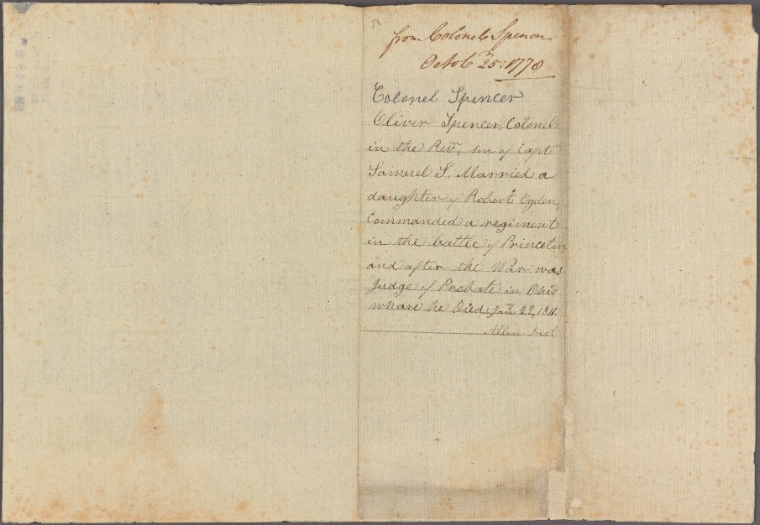 from Colonel Spencer
Octobr 25: 1778
Colonel Spencer
Oliver Spencer, Colonel
in the Rev. son of Capt
Samuel S. Married a
daughter of Robert Ogden,
Commanded a regiment
in the battle of Princeton
and after the War was
Judge of Probate in Ohio
whare he Died Jan 22, 1811.
Allen Dict